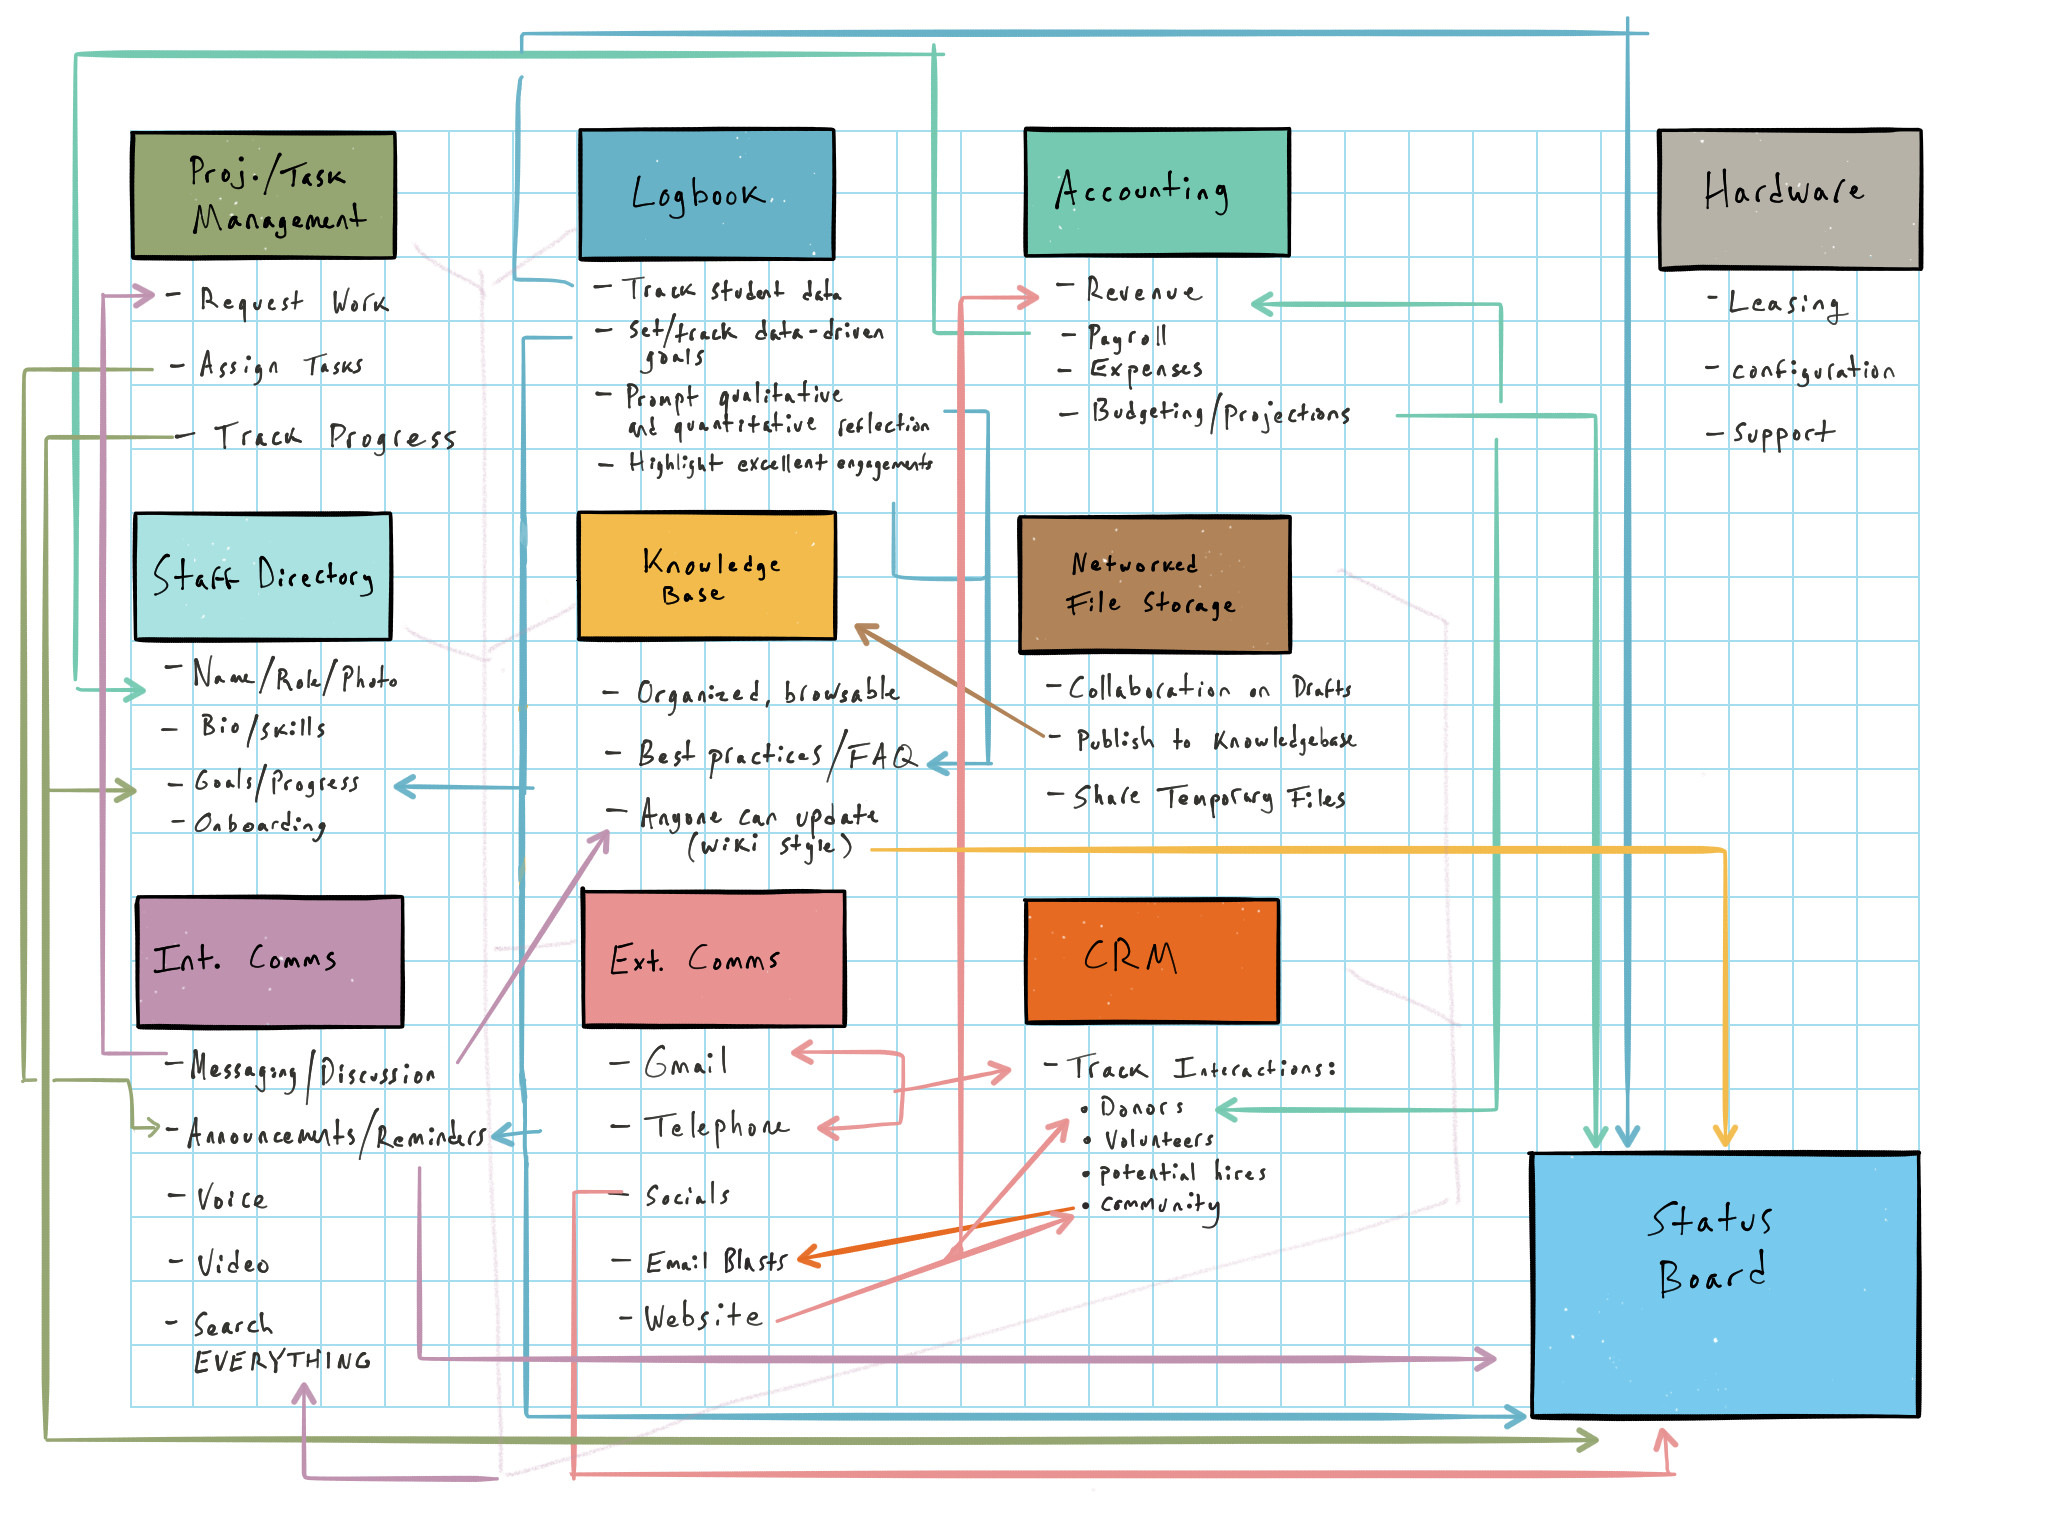 Proj./Task
Management
- Request Work
- Assign Tasks
- Track Progress
Logbook
- Track student data
- Set/track data-driven
goals
- Prompt qualitative
and quantitative reflection
- Highlight excellent engagements
Accounting
- Revenue
- Payroll
- Expenses
- Budgeting/Projections
Hardware
- Leasing
- configuration
- Support
Staff Directory
- Name/Role/Photo
- Bio/skills
- Goals/Progress
- Onboarding
Knowledge
Base
- Organized, browsable
- Best practices/FAQ
- Anyone can update
(wiki style)
Networked
File Storage
- Collaboration on Drafts
- Publish to Knowledgebase
- Share Temporary Files
Int. Comms
- Messaging/Discussion
- Announcements/Reminders
- Voice
- Video
- Search
EVERYTHING
Ext. Comms
- Gmail
- Telephone
- Socials
- Email Blasts
- Website
CRM
- Track Interactions:
• Donors
• Volunteers
• potential hires
• community
Status
Board